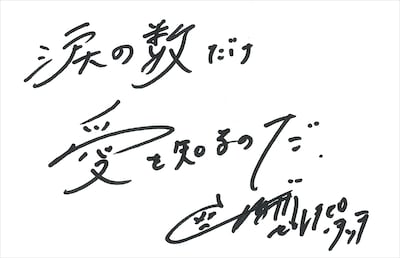 涙の数だけ
愛を知るのだ.